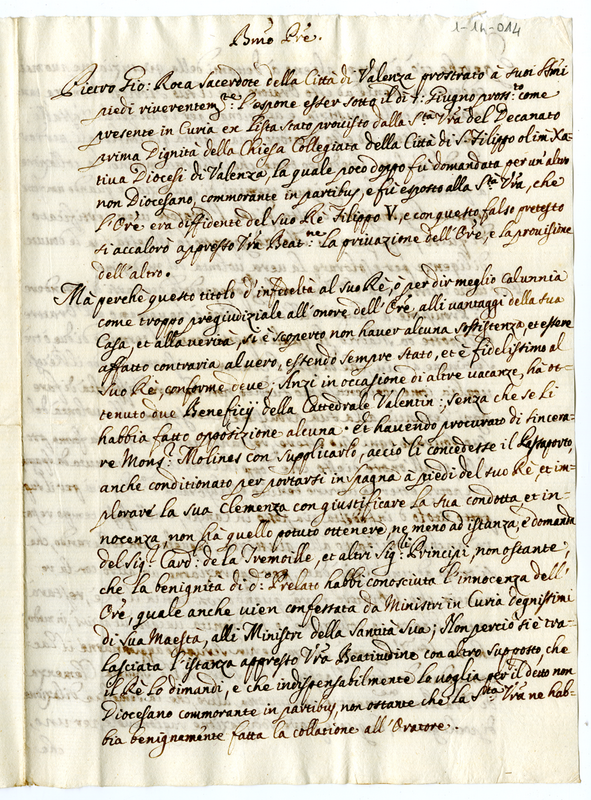 1-14-014
Bmo Pre.
Pietro Gio: Roca Sacerdote della Città di Valenza prostrato à suoi SSmi
piedi riverentemte: l'espone esser sotto il dì p: Giugno prossto come
presente in Curia ex Lista stato provisto dalla Stà Vrã del Decanato
prima Dignità della Chiesa Collegiata della Città di S. Filippo olim Xa-
tiva Diocesi di Valenza, la quale poco doppo fù domandata per un'altro
non Diocesano, commorante in partibus, e fù esposto alla Stà Vrã, che
l'Orê era diffidente del suo Rè Filippo V., e con questo falso pretesto
si accalorò appresso Vrã Beatne: la privazione dell'Orê, e la provisione
dell'altro.
Mà perche questo titolo d'infedeltà al suo Rè, ò per dir meglio calunnia
come troppo pregiudiziale all'onore dell'Orê, alli vantaggi della sua
Casa, et alla verità, si è scoperto non haver alcuna sossistenza, et essere
affatto contraria al vero, essendo sempre stato, et è fidelissimo al
suo Rè, conforme deve; Anzi in occasione di altre vacanze, hà ot-
tenuto due Beneficij della Cattedrale Valentin:, senza che se li
habbia fatto opposizione alcuna. et havendo procurato di sincera-
re Monsr: Molines con supplicarlo, acciò li concedesse il Passaporto,
anche conditionato per portarsi in spagna à piedi del suo Rè, et im-
plorare la sua Clemenza con giustificare la sua condotta et in-
nocenza, non hà quello potuto ottenere, ne meno ad istanza, e domanda
del Sigr: Card: de la Tremoille, et altri Sigri Principi, non ostante,
che la benignita di do: Prelato habbi conosciuta l'innocenza dell'
Orê, quale anche vien confessata da Ministri in Curia degnissimi
di Sua Maestà, alli Ministri della Santità Sua; Non perciò si è tra-
lasciata l'istanza appresso Vrã Beatitudine con altro supposto, che
il Rè lo dimandi, e che indispensabilmente lo voglia per il detto non
Diocesano commorante in partibus, non ostante che la Stà Vrã ne hab-
bia benignamente fatta la collatione all'Oratore.